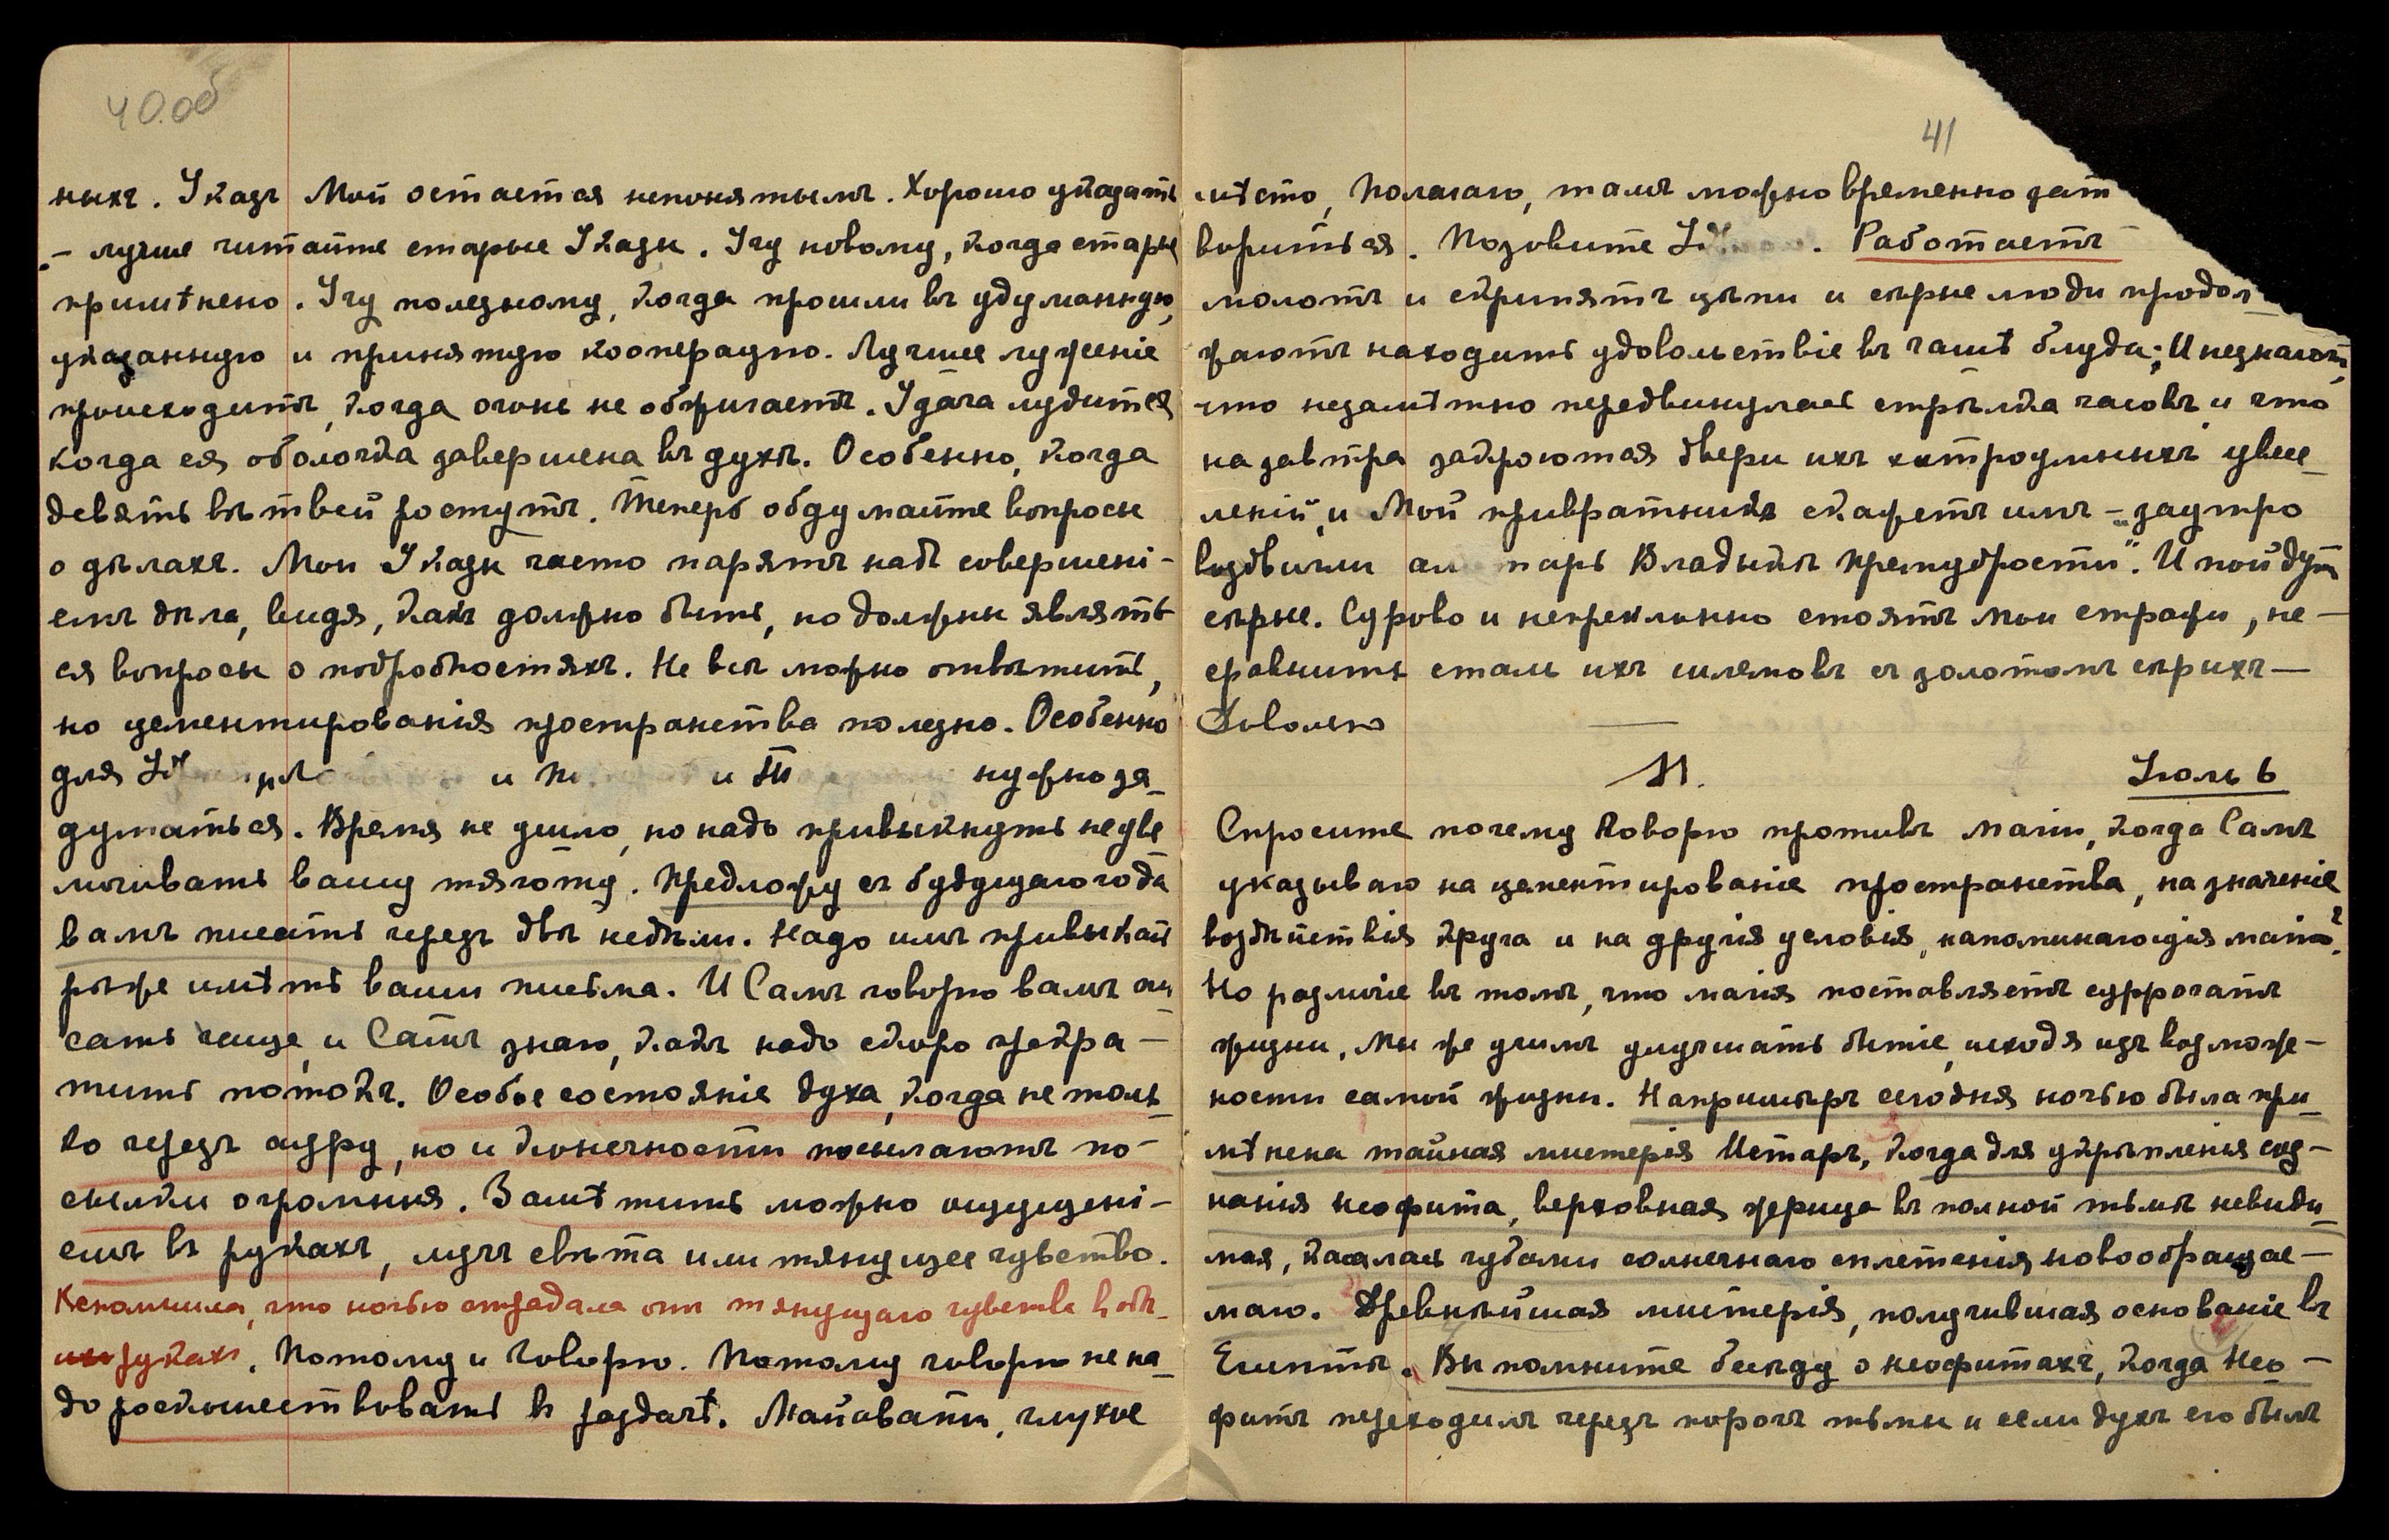 40.об
ныхъ. Указъ Мой остается непонятымъ. Хорошо указать
– лучше читайте старые Указы. Учу новому, когда старые
примѣнено. Учу полезному, когда прошли въ удуманную,
указанную и принятую кооперацію. Лучшее луженіе
происходитъ, когда огонь не обжигаетъ. Удача лудится
когда ея оболочка завершена въ духѣ. Особенно, когда
девять вѣтвей ростутъ. Теперь обдумайте вопросы
о дѣлахъ. Мои Указы часто парятъ надъ совершені-
емъ дѣла, видя, какъ должно быть, но должны являть
ся вопросы о подробностяхъ. Не всѣ можно отвѣтить,
но цементированія пространства полезно. Особенно
для и и нужно за-
думаться. Время не ушло, но надо привыкнуть не уве
личивать вашу тяготу. Предложу съ будущаго года
вамъ писать черезъ двѣ недѣли. Надо имъ привыкать
рѣже имѣть ваши письма. И Самъ говорю вамъ пи
сать чаще, и Самъ знаю, какъ надо скоро прекра-
тить потокъ. Особое состояніе духа, когда не толь-
ко черезъ ауру, но и конечности посылаютъ по-
сылки огромныя. Замѣтить можно ощущені-
емъ въ рукахъ, лучъ свѣта или тянущее чувство.
Я вспомнила, что ночью страдала отъ тянущаго чувства въ обѣ-
ихъ рукахъ. Потому и говорю. Потому говорю не на-
до роскошествовать въ раздачѣ. Малоѣванъ, глухое
41
мѣсто, Полагаю, тамъ можно временно зат
вориться. Позовите Работаетъ
молотъ и скрипятъ цѣпи и сѣрые люди продол
жаютъ находить удовольствіе въ чашѣ блуда; И не знаютъ,
что незамѣтно передвинулась стрѣлка часовъ и что
на завтра закроются двери ихъ хитроумныхъ увесе-
леній, и Мой привратникъ скажетъ имъ – „заутро
воздвигли алтарь Владыкѣ Премудрости". И пойдутъ
сѣрые. Сурово и непреклонно стоятъ Мои стражи, не –
сравнить сталь ихъ шлемовъ съ золотомъ сѣрыхъ –
Довольно
М. Іюль 6
Спросите почему Говорю противъ магіи, когда Самъ
указываю на цементированіе пространства, на значеніе
воздѣйствія круга и на другія условія, напоминающія магію?
Но различіе въ томъ, что магія поставляетъ суррогатъ
жизни, Мы же учимъ улучшать бытіе, исходя изъ возмож-
ности самой жизни. Напримѣръ сегодня ночью была при-
мѣнена тайная мистерія Иштаръ, когда для укрѣпленія соз-
нанія неофита, верховная жрица въ полной тьмѣ невиди-
мая, касалась губами солнечнаго сплетенія новообращае-
маго. Древнѣйшая мистерія, получившая основаніе въ
Египтѣ. Вы помните бесѣду о неофитахъ, когда нео-
фитъ переходилъ черезъ порогъ тьмы и если духъ его былъ